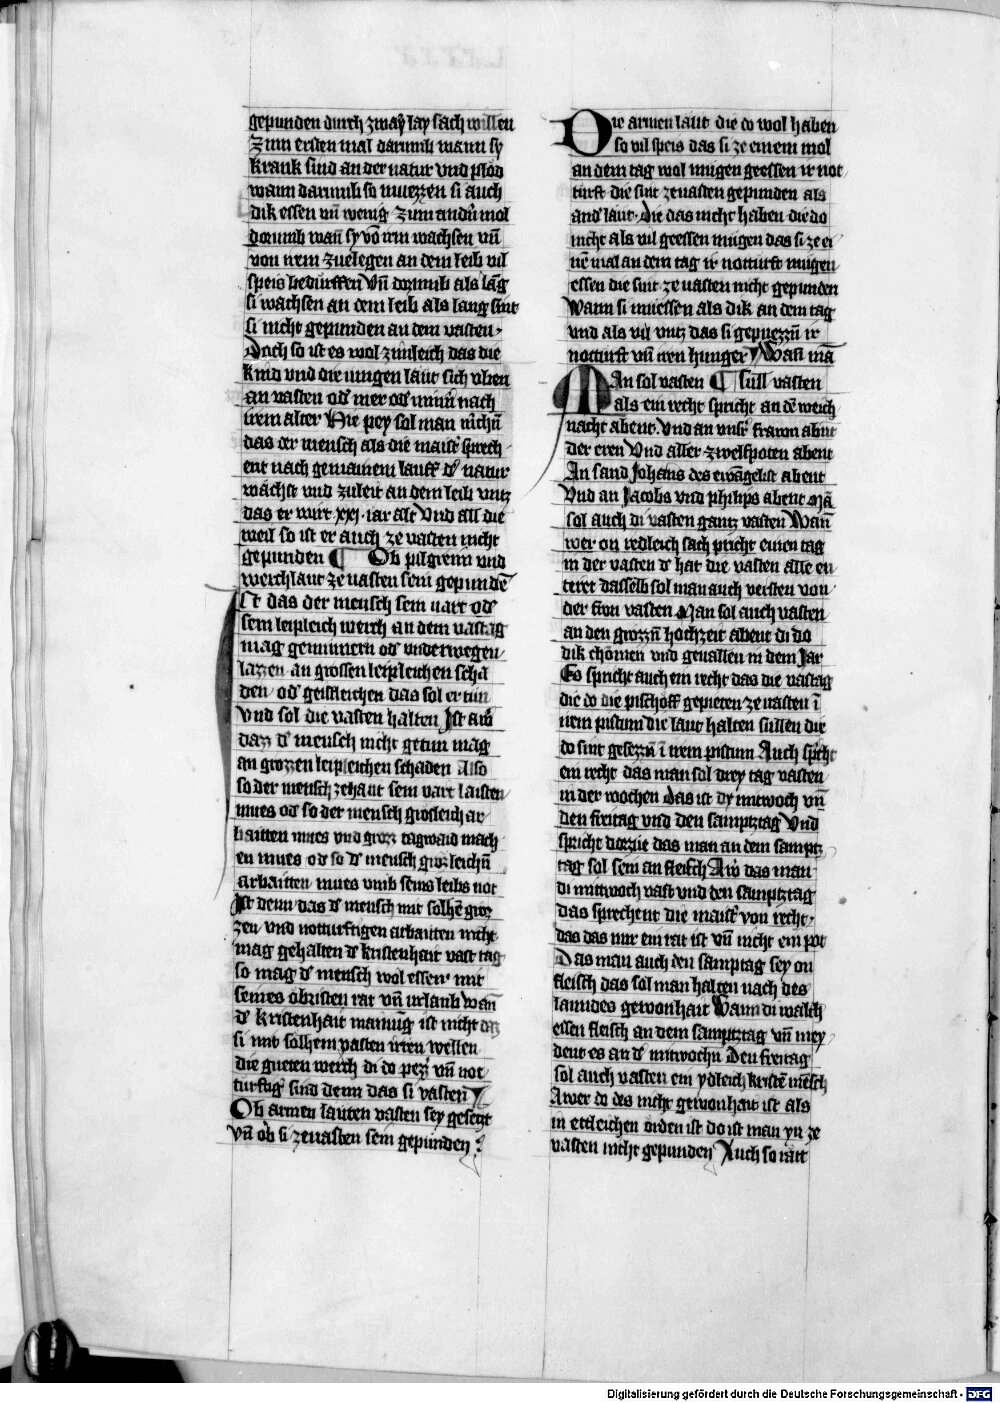 gepunden durch zwaÿ lay sach willen
Zum ersten mal darumb wann sy
krank sind an der natur vnd plöd
wann darumb so muezzen si auch
dik essen vn̄ wenig Zum andn̄ mol
dorumb wan̄ sy vō irm wachsen vn̄
von irem zuelegen an dem leib vil
speis bedürffen Vn̄ dorumb als lāg
si wachsen an dem leib als lang sint
si nicht gepunden an dem vasten
Doch so ist es wol zimleich das die
kind vnd die iungen läut sich vben
an vasten od̓ mer od̓ minn̄ nach
irem alter Hie pey sol man mͥchn̄
das der mensch als die maist̓ sprech
ent nach gemainem lauff d̓ natur
wächst vnd zuleit an dem leib vntz
das er wirt xxj iar alt Vnd all die
weil so ist er auch ze vasten nicht
gepunden ¶ Ob pilgreim vnd
werchläut ze vasten sein gepundē
Ist das der mensch sein vart od̓
sein leipleich werch an dem vastag
mag gemīnnern od̓ vnderwegen
lazzen an grossen leipleichen scha
den od̓ geistleichen das sol er tün
Vnd sol die vasten halten Ist aw̓
daz d̓ mensch nicht getun mag
an grozzen leipleichen schaden Also
so der mensch zehant sein vart laisten
mues od̓ so der mensch grosleich ar
baitten mues vnd groz tagwaid mach
en mues od̓ so d̓ mensch grozleichn̄
arbaitten mues vmb seins leibs not
Ist denn das d̓ mensch mit solhē groz
zen vnd notturftigen arbaiten nicht
mag gehalten d̓ kristenhait vast tag
so mag d̓ mensch wol essen mit
seines obristen rat vn̄ vrlaub Wan̄
d̓ kristenhait mainūg ist nicht daz
si mit solhem vasten irren wellen
die gueten werch di do pez̓ vn̄ not
türftig̓ sind denn das si vasten
Ob armen läuten vasten sey gesetzt
vn̄ ob si ze vasten sein gepunden
Die armen läut die do wol haben
so vil speis das si ze einem mol
an dem tag wol mugen geessen ir not
türft die sint ze vasten gepunden als
and̓ läut Die das nicht haben die do
nicht als vil geessen mügen das si ze ei
nē mal an dem tag ir notturft mugen
essen die sint ze vasten nicht gepunden
Wann si muessen als dik an dem tag
vnd als vil vntz das si gepuezzn̄ ir
notturft vn̄ iren hunger Wan̄ mā
Man sol vasten ¶ süll vasten
als ein recht spricht an dē weich
nacht abent Vnd an vns̓ frawn abnt
der eren Vnd aller zwelfpoten abent
An sand Johans des ewāgelist abent
Vnd an Jacobs vnd philips abent Mā
sol auch di vasten gantz vasten Wan̄
wer on redleich sach pricht einen tag
in der vasten d̓ hat die vasten alle en
teret dasselb sol man auch versten von
der fron vasten Man sol auch vasten
an den grozzn̄ hochzeit abent di do
dik chömen vnd geuallen in dem Jar
Es spricht auch ein recht das die vastäg
die do die pischöff gepieten ze vasten ī
irem pistum die läut halten süllen die
do sint gesezzn̄ ī irem pistum Auch spͥcht
ein recht das man sol drey tag vasten
in der wochen Das ist dy mitwoch vn̄
den freitag vnd den samptztag Vnd
spricht dorzue das man an dem samptz
tag sol sein an fleisch Aw̓ das man
di mittwoch vast vnd den samptztag
das sprechent die maist̓ von recht
das das nur ein rat ist vn̄ nicht ein pot
Das man auch den samptag sey on
fleisch das sol man halten nach des
lanndes gewonhait Wann di walch
essen fleisch an dem samptztag vn̄ mey
dent es an d̓ mitwochn̄ Den freitag
sol auch vasten ein ydleich kristē mēsch
Awer do des nicht gewonhait ist als
in ettleichen orden ist do ist man yn ze
vasten nicht gepunden Auch so ratt
Digitalisierung gefördert durch die Deutsche Forschungsgemeinschaft - DFG